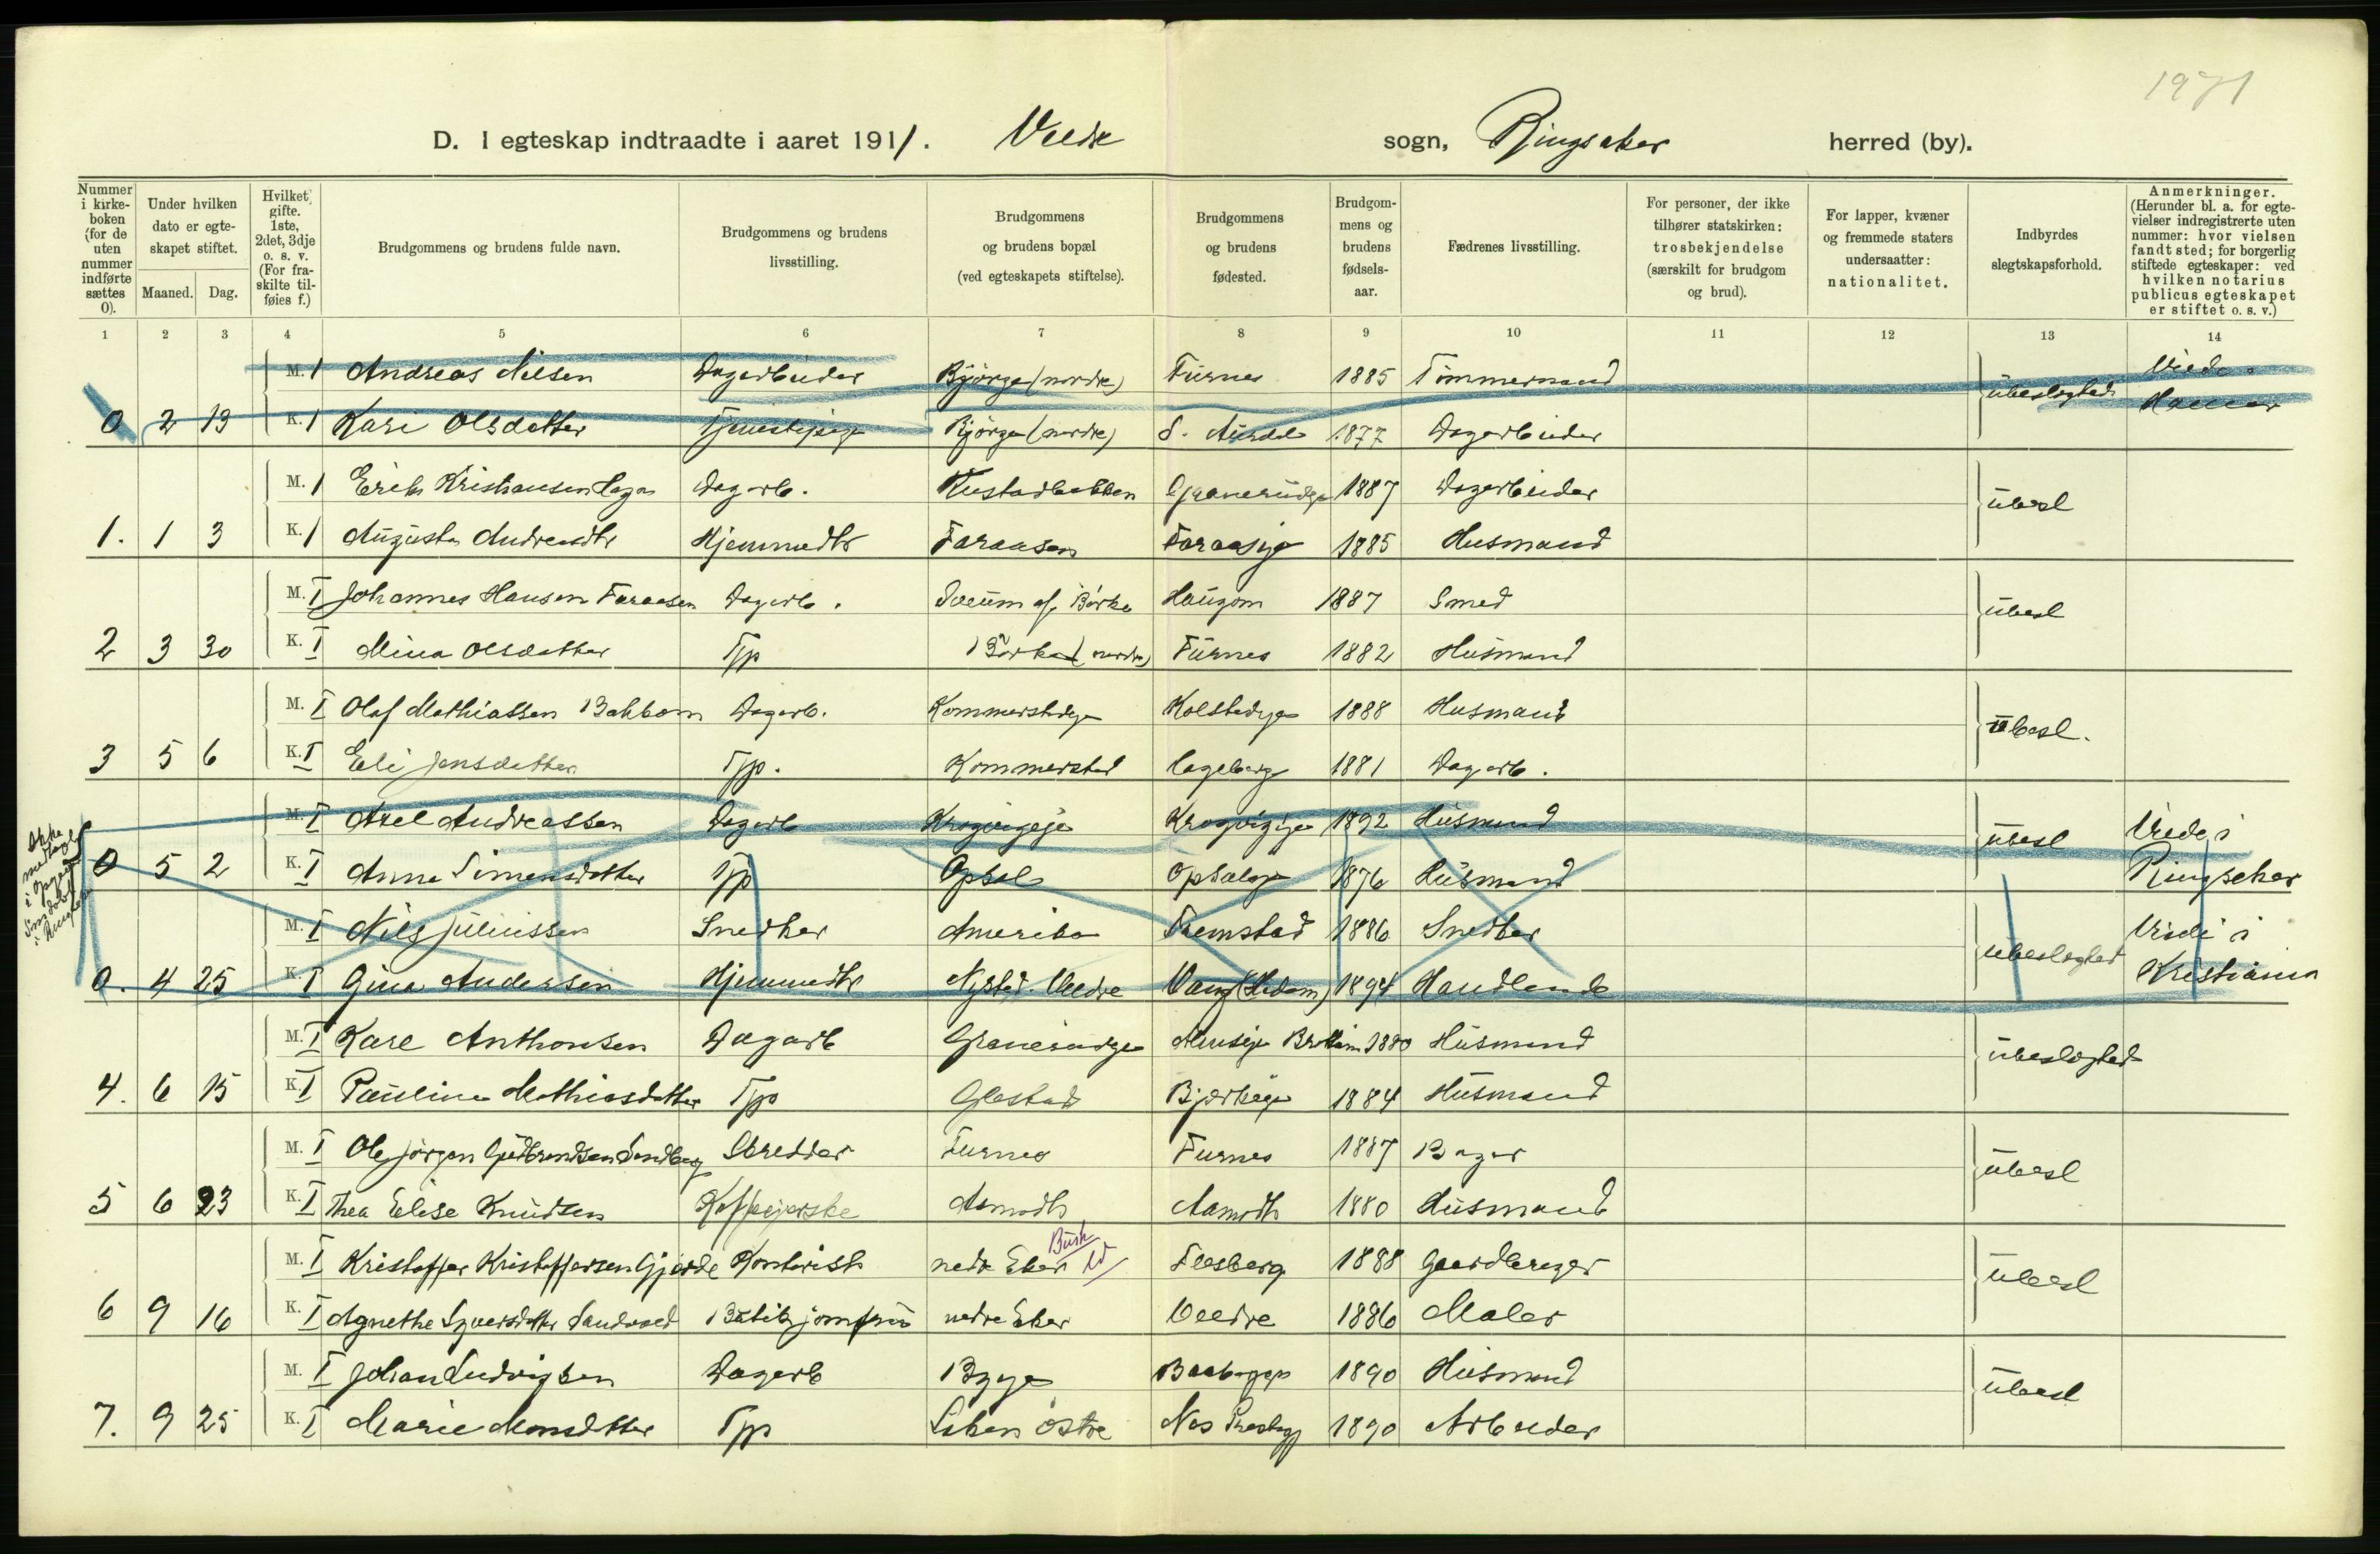 1971
D. I egteskap indtraadte i aaret 1911. Veldre sogn, Ringsaker herred (by).
Nummer i kirkeboken (for de uten nummer indførte sættes 0).
Under hvilken dato er egteskapet stiftet.
Maaned. Dag.
Hvilket gifte. 1ste, 2det, 3dje o. s. v. (For fraskilte tilføies f.)
Brudgommens og brudens fulde navn.
Brudgommens og brudens livsstilling.
Brudgommens og brudens bopæl (ved egteskapets stiftelse).
Brudgommens og brudens fødested.
Brudgommens og brudens fødselsaar.
Fædrenes livsstilling.
For personer, der ikke tilhører statskirken: trosbekjendelse (særskilt for brudgom og brud).
For lapper, kvæner og fremmede staters undersaatter: nationalitet.
Indbyrdes slegtskapsforhold.
Anmerkninger. (Herunder bl. a. for egtevielser indregistrerte uten nummer: hvor vielsen fandt sted; for borgerlig stiftede egteskaper: ved hvilken notarius publicus egteskapet er stiftet o. s. v.)
1 2 3 4 5 6 7 8 9 10 11 12 13 14
M. 1 Andreas Nilsen Dagarbeider Björge (nordre) Furnes 1885 Tömmermand ubeslegted Viede
0 2 13 K. 1 Kari Olsdatter Tjenestepige Björge (nordre) S. Aurdal 1877 Dagarbeider Hamar
M. 1 Erik Kristiansen Hagen Dagarb. Kustadbakken Graverudeje 1887 Dagarbeider ubesl
1. 1 3 K. 1 Augusta Andreasdtr Hjemmedtr Faraasen Faraaseje 1885 Husmand
M. I Johannes Hansen Faraasen Dagarb. Börke Haugom 1887 Smed ubesl
2 3 30 K. I Mina Olsdatter Tjp Börke (nordre) Furnes 1882 Husmand
M. I Olaf Mathiassen Bakbom Dagarb. Kommerstadeje Kolstadeje 1888 Husmand ubesl.
3 5 6 K. I Eli Jensdatter Tjp. Kommerstad Hageberg 1881 Dagarb.
Ikke medtaget i
M. I Axel Andreassen Dagarb Krogvigeje Krogvigeje 1892 Husmand ubesl Viede i
0 5 2 K. I Anne Simensdatter Tjp Opsal Opsaleje 1876 Husmand Ringsaker
M. I Nils Juliussen Snedker Amerika Stemstad 1886 Snedker ubeslegted Viede i
0. 4 25 K. I Gina Andersen Hjemmedtr Nystad Veldre Vang (Hedem) 1894 Handlende Kristiania
M. I Kare Anthonsen Dagarb Graverudeje Brøttum 1880 Husmand ubeslegted
4. 6 15 K. I Pauline Mathiasdatter Tjp Glestad Bjerkeeje 1884 Husmand
M. I Ole Jörgen Gudbrandsen Sandberg Skredder Furnes Furnes 1887 Bager ubesl
5 6 23 K. I Thea Elise Knudsen Kaffejerske Aamodt Aamodt 1880 Husmand
M. I Kristoffer Kristoffersen Gjörde Kontorist nedre Eker Busk Fæsberg 1888 Gaardbruger ubesl
6 9 16 K. I Agnethe Syversdatter Sandvold Butikjomfru nedre Eker Veldre 1886 Maler
M. I Johan Ludvigsen Dagarb Bryge 1890 Husmand ubesl
7. 9 25 K. I Marie Monsdatter Tjp Liken östre Nes 1890 Arbeider